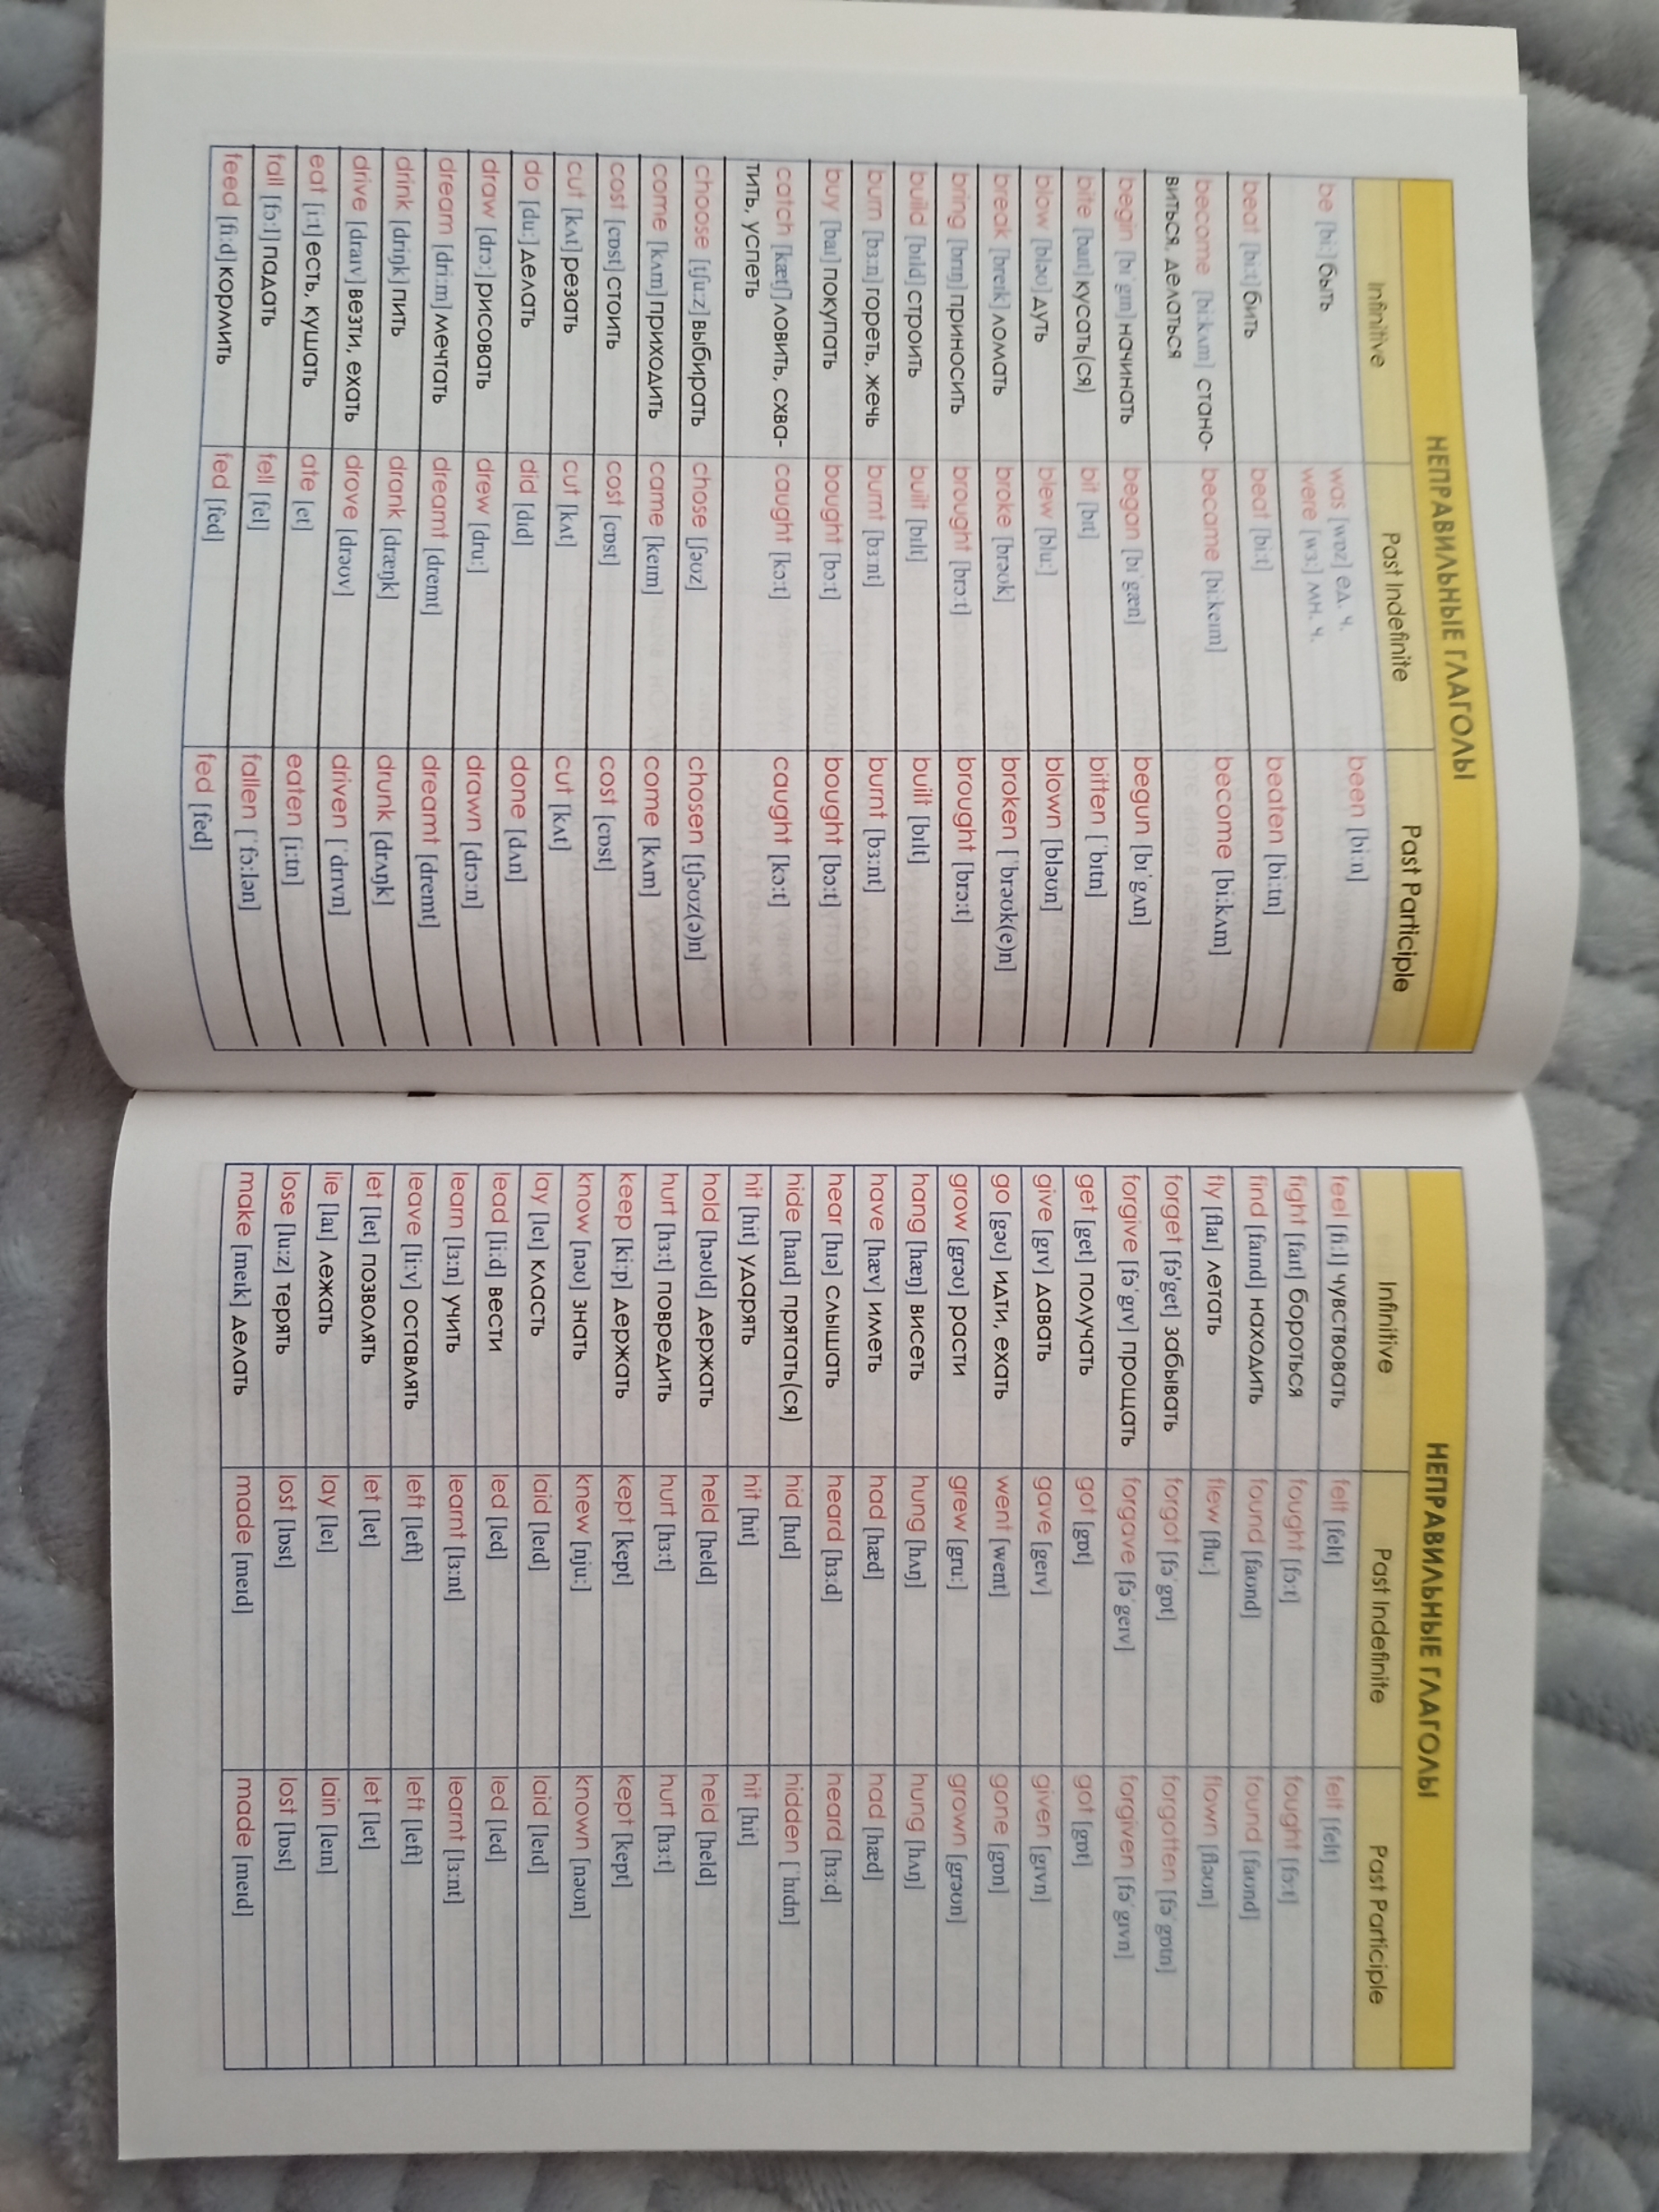 НЕПРАВИЛЬНЫЕ ГЛАГОЛЫ
Infinitive Past Indefinite Past Participle
be [bi:] быть was [wɒz] ед. ч. been [bi:n]
were [wɜ:] мн. ч.
beat [bi:t] бить beat [bi:t] beaten [bi:tn]
become [bi:kʌm] стано- became [bi:keɪm] become [bi:kʌm]
виться, делаться
begin [bɪˈgɪn] начинать began [bɪˈgæn] begun [bɪˈgʌn]
bite [baɪt] кусать(ся) bit [bɪt] bitten [ˈbɪtn]
blow [bləʊ] дуть blew [blu:] blown [bləʊn]
break [breɪk] ломать broke [brəʊk] broken [ˈbrəʊk(e)n]
bring [brɪŋ] приносить brought [brɔ:t] brought [brɔ:t]
build [bɪld] строить built [bɪlt] built [bɪlt]
burn [bɜ:n] гореть, жечь burnt [bɜ:nt] burnt [bɜ:nt]
buy [baɪ] покупать bought [bɔ:t] bought [bɔ:t]
catch [kætʃ] ловить, схва- caught [kɔ:t] caught [kɔ:t]
тить, успеть
choose [tʃu:z] выбирать chose [ʃəʊz] chosen [tʃəʊz(ə)n]
come [kʌm] приходить came [keɪm] come [kʌm]
cost [cɒst] стоить cost [cɒst] cost [cɒst]
cut [kʌt] резать cut [kʌt] cut [kʌt]
do [du:] делать did [dɪd] done [dʌn]
draw [drɔ:] рисовать drew [dru:] drawn [drɔ:n]
dream [dri:m] мечтать dreamt [dremt] dreamt [dremt]
drink [drɪŋk] пить drank [dræŋk] drunk [drʌŋk]
drive [draɪv] везти, ехать drove [drəʊv] driven [ˈdrɪvn]
eat [i:t] есть, кушать ate [et] eaten [i:tn]
fall [fɔ:l] падать fell [fel] fallen [ˈfɔ:lən]
feed [fi:d] кормить fed [fed] fed [fed]
НЕПРАВИЛЬНЫЕ ГЛАГОЛЫ
Infinitive Past Indefinite Past Participle
feel [fi:l] чувствовать felt [felt] felt [felt]
fight [faɪt] бороться fought [fɔ:t] fought [fɔ:t]
find [faɪnd] находить found [faʊnd] found [faʊnd]
fly [flaɪ] летать flew [flu:] flown [fləʊn]
forget [fə'get] забывать forgot [fəˈgɒt] forgotten [fəˈgɒtn]
forgive [fəˈgɪv] прощать forgave [fəˈgeɪv] forgiven [fəˈgɪvn]
get [get] получать got [gɒt] got [gɒt]
give [gɪv] давать gave [geɪv] given [gɪvn]
go [gəʊ] идти, ехать went [went] gone [gɒn]
grow [grəʊ] расти grew [gru:] grown [grəʊn]
hang [hæŋ] висеть hung [hʌŋ] hung [hʌŋ]
have [hæv] иметь had [hæd] had [hæd]
hear [hɪə] слышать heard [hɜ:d] heard [hɜ:d]
hide [haɪd] прятать(ся) hid [hɪd] hidden [ˈhɪdn]
hit [hit] ударять hit [hit] hit [hit]
hold [həʊld] держать held [held] held [held]
hurt [hɜ:t] повредить hurt [hɜ:t] hurt [hɜ:t]
keep [ki:p] держать kept [kept] kept [kept]
know [nəʊ] знать knew [nju:] known [nəʊn]
lay [leɪ] класть laid [leɪd] laid [leɪd]
lead [li:d] вести led [led] led [led]
learn [lɜ:n] учить learnt [lɜ:nt] learnt [lɜ:nt]
leave [li:v] оставлять left [left] left [left]
let [let] позволять let [let] let [let]
lie [laɪ] лежать lay [leɪ] lain [leɪn]
lose [lu:z] терять lost [lɒst] lost [lɒst]
make [meɪk] делать made [meɪd] made [meɪd]